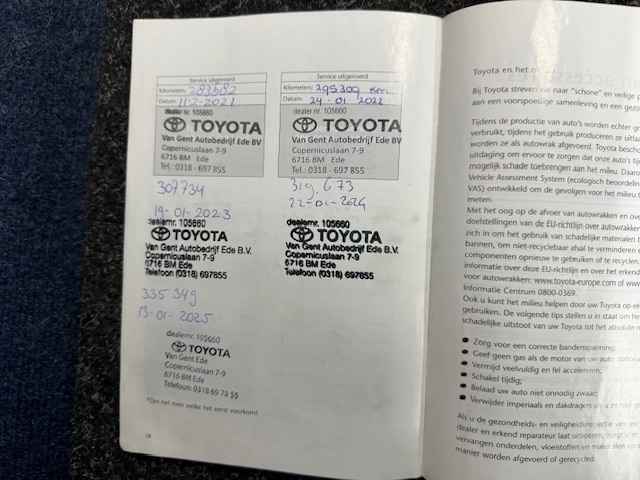 Service uitgevoerd
Kilometers: 283682
Datum: 11-2-2021
dealer nr. 105660
TOYOTA
Van Gent Autobedrijf Ede BV
Copernicuslaan 7-9
6716 BM Ede
Tel.: 0318 - 697 855
307734
19-01-2023
dealernr. 105660
TOYOTA
Van Gent Autobedrijf Ede B.V.
Copernicuslaan 7-9
6716 BM Ede
Telefoon (0318) 697855
335349
13-01-2025
dealernr. 105660
TOYOTA
Van Gent Ede
Copernicuslaan 7-9
6716 BM Ede
Telefoon: 0318 69 78 55
Service uitgevoerd
Kilometers: 295309 km
Datum: 24-01-2022
dealer nr. 105660
TOYOTA
Van Gent Autobedrijf Ede BV
Copernicuslaan 7-9
6716 BM Ede
Tel.: 0318 - 697 855
319.673
22-01-2024
dealernr. 105660
TOYOTA
Van Gent Autobedrijf Ede B.V.
Copernicuslaan 7-9
6716 BM Ede
Telefoon (0318) 697855
Toyota en het
Bij Toyota streven we naar "schone" en veilige
aan een voorspoedige samenleving en een gezond
Tijdens de productie van auto's worden echter
verbruikt, tijdens het gebruik produceren ze uitlaat
worden ze als autowrak afgevoerd. Toyota beschouwt
uitdaging om ervoor te zorgen dat onze auto's
mogelijk schade toebrengen aan het milieu. Daarom
Vehicle Assessment System (ecologisch beoordelings
VAS) ontwikkeld om de gevolgen voor het milieu
meten.
Met het oog op de afvoer van autowrakken en
doelstellingen van de EU-richtlijn over autowrakken
zich in om het gebruik van schadelijke materialen
bannen, om niet-recyclebaar afval te verminderen
componenten opnieuw te gebruiken of te recyclen.
informatie over deze EU-richtlijn en over het
voor autowrakken: www.toyota-europe.com of
Informatie Centrum 0800-0369.
Ook u kunt het milieu helpen door uw Toyota op
gebruiken. De volgende tips stellen u in staat om
schadelijke uitstoot van uw Toyota tot het absolute
Zorg voor een correcte bandenspanning;
Geef geen gas als de motor van uw auto
Vermijd veelvuldig en fel accelereren;
Schakel tijdig;
Belaad uw auto niet onnodig zwaar;
Verwijder imperiaals en dakdragers
Als u de gezondheids- en veiligheids
dealer en erkend reparateur laat uitvoeren,
vervangen onderdelen, vloeistoffen en
manier worden afgevoerd of gerecycled.